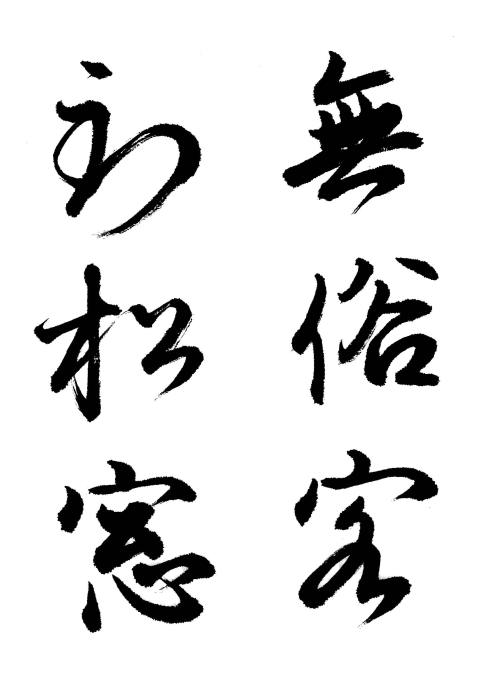 無俗客
到松窓